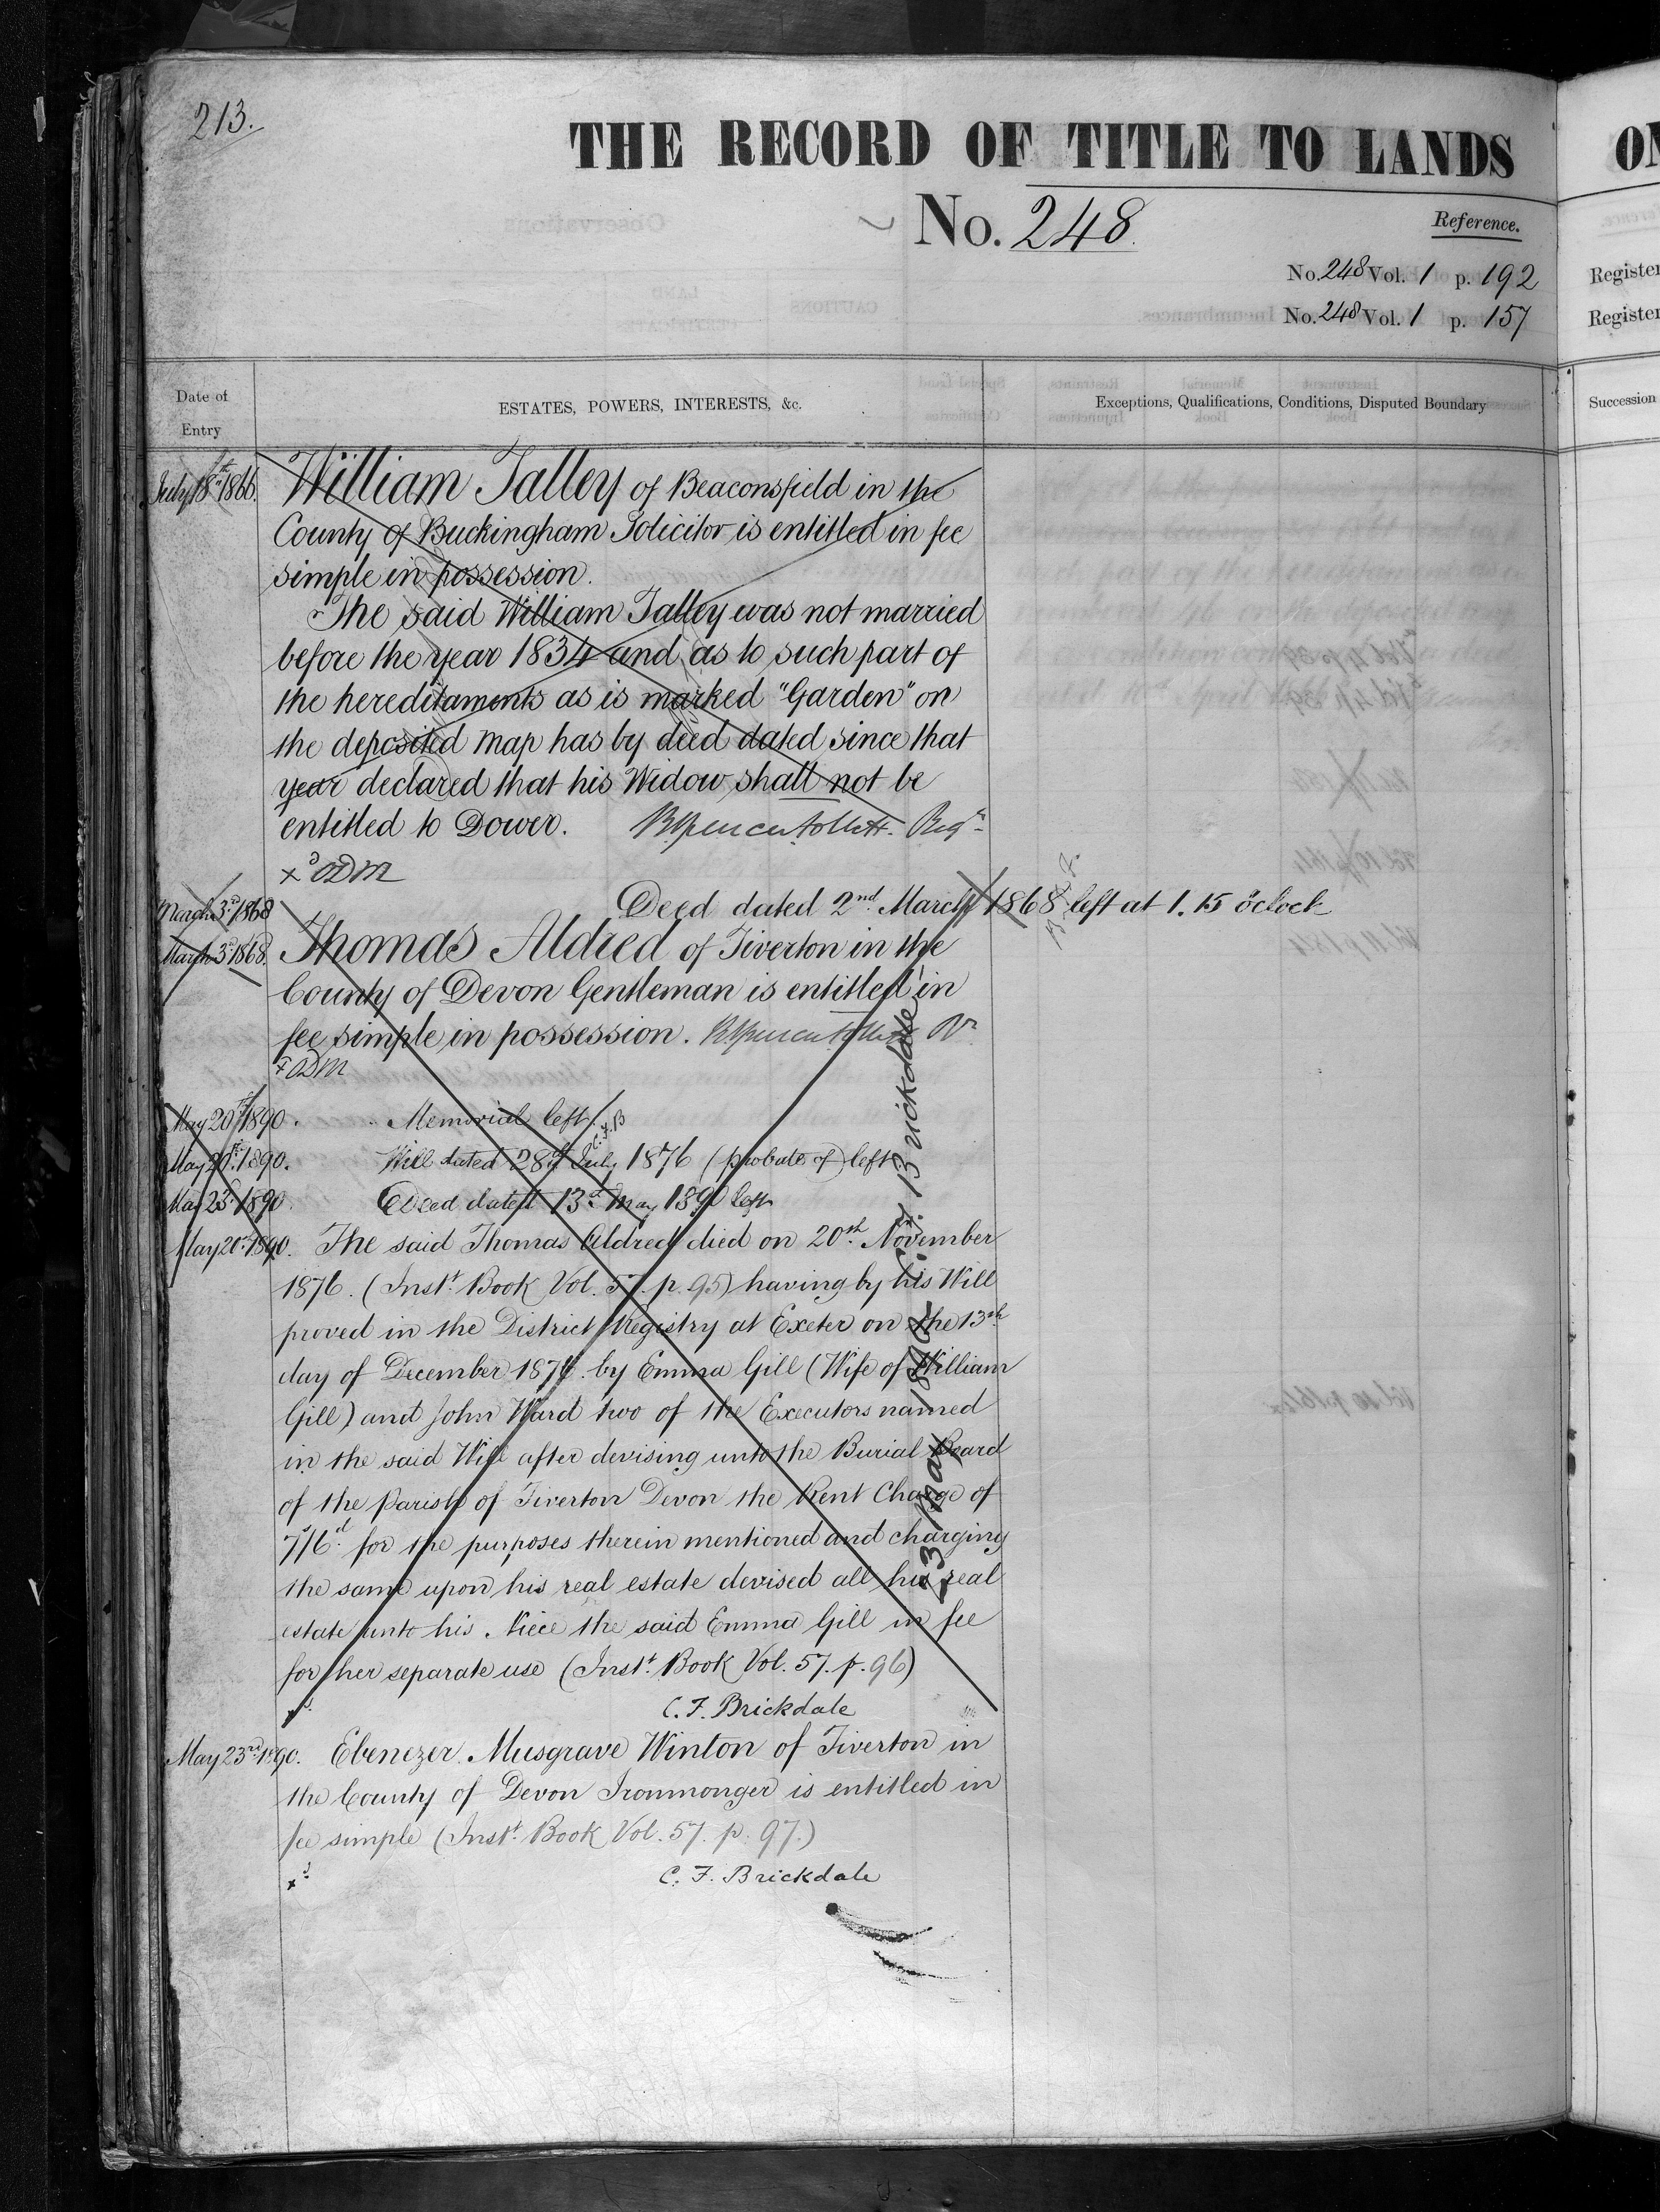 213.
THE RECORD OF TITLE TO LANDS
No. 248.
Reference.
No. 248 Vol. 1 p. 192
No. 248 Vol. 1 p. 157
Register
Register
Date of Entry
ESTATES, POWERS, INTERESTS, &c.
Exceptions, Qualifications, Conditions, Disputed Boundary
Succession
July 18th 1866. William Talley of Beaconsfield in the
County of Buckingham Solicitor is entitled in fee
simple in possession.
The said William Talley was not married
before the year 1834 and as to such part of
the hereditaments as is marked "Garden" on
the deposited map has by deed dated since that
year declared that his Widow shall not be
entitled to Dower. Regr
March 3d 1868 Deed dated 2nd March 1868 left at 1.15 o'clock
March 3d 1868. Thomas Aldred of Tiverton in the
County of Devon Gentleman is entitled in
fee simple in possession.
May 20th 1890. Memorial left. C.F.B
May 20th 1890. Will dated 28th July 1876 (probate of) left
May 23d 1890. Deed dated 13th May 1890 left
May 20th 1890. The said Thomas Aldred died on 20th November
1876. (Instt. Book Vol. 57. p. 95) having by his Will
proved in the District Registry at Exeter on the 13th
day of December 1876. by Emma Gill (Wife of William
Gill) and John Ward two of the Executors named
in the said Will after devising unto the Burial Board
of the Parish of Tiverton Devon the Rent Charge of
7s/6d for the purposes therein mentioned and charging
the same upon his real estate devised all his real
estate unto his Niece the said Emma Gill in fee
for her separate use (Instt. Book Vol. 57. p. 96)
C. F. Brickdale
23 May 1890. C. F. Brickdale
May 23rd 1890. Ebenezer Musgrave Winton of Tiverton in
the County of Devon Ironmonger is entitled in
fee simple (Instt. Book Vol. 57. p. 97.)
C. F. Brickdale